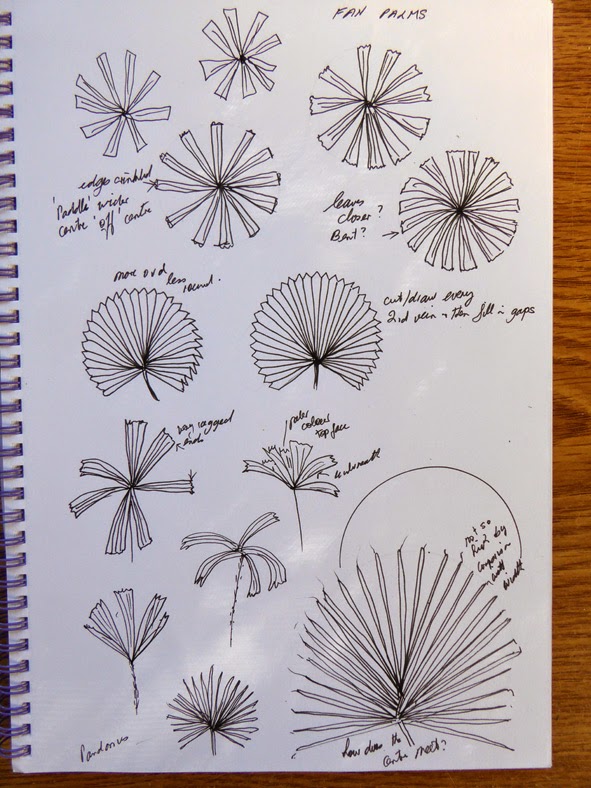 FAN PALMS
edges crinkled
'Paddle' wider
centre 'off' centre
leaves
closer?
Bent?
more oval less
round.
cut/draw every
2nd vein & then fill in gaps
very ragged
ends
paler
colour
top face
underneath
not so
by
comparison
with
Pandanus
how does the
centre meet?